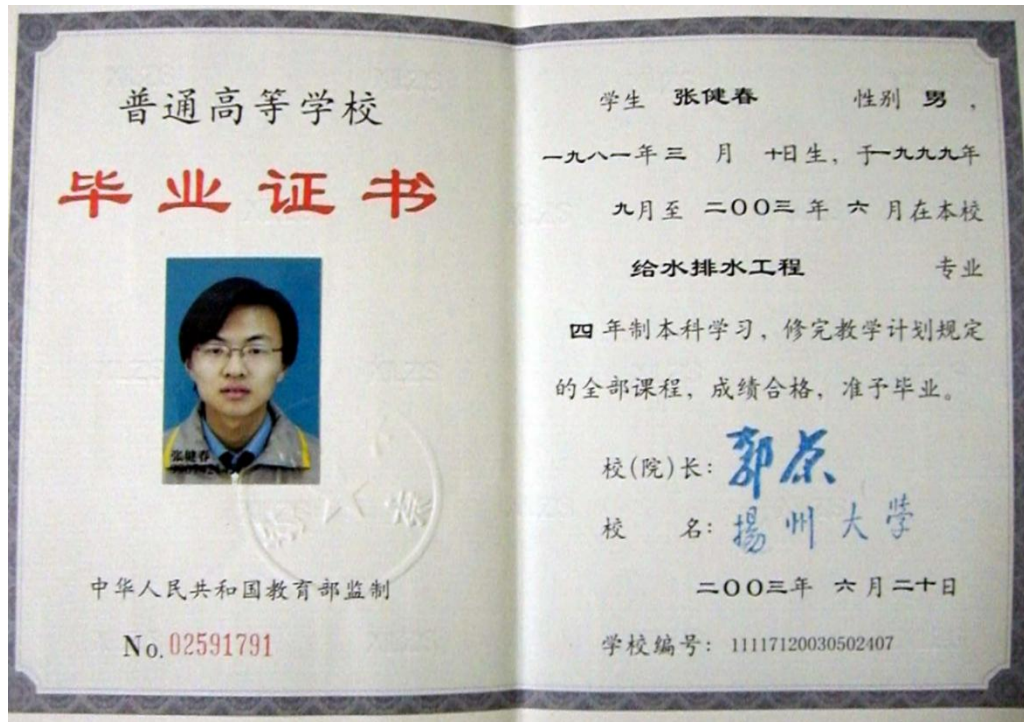 普通高等学校
毕业证书
张健春
中华人民共和国教育部监制
No. 02591791
学生 张健春 性别 男 ，
一九八一年三 月 十日生，于一九九九年
九月至 二〇〇三 年 六 月在本校
给水排水工程 专业
四 年制本科学习，修完教学计划规定
的全部课程，成绩合格，准予毕业。
校(院)长：郭荣
校 名：揚州大学
二〇〇三年 六 月二十日
学校编号：11117120030502407